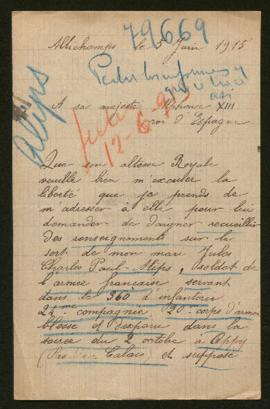 79669
Allichamps le 3 Juin 1915
Pedir informes y
que
así
Alips
A sa majesté Alphonse XIII
roi d'Espagne
12-6-9
Que son altesse Royale
veuille bien m'excuser la
liberté que je prends de
m'adresser à elle pour lui
demander de daigner recueillir
des renseignements sur le
sort de mon mari Jules
Charles Paul Alips, soldat de
l'armée française servant
dans le 360 d'infanterie
22eme compagnie 20e corps d'armée
blessé et disparu dans la
journée du 2 octobre à
(Pas de Calais) et supposé